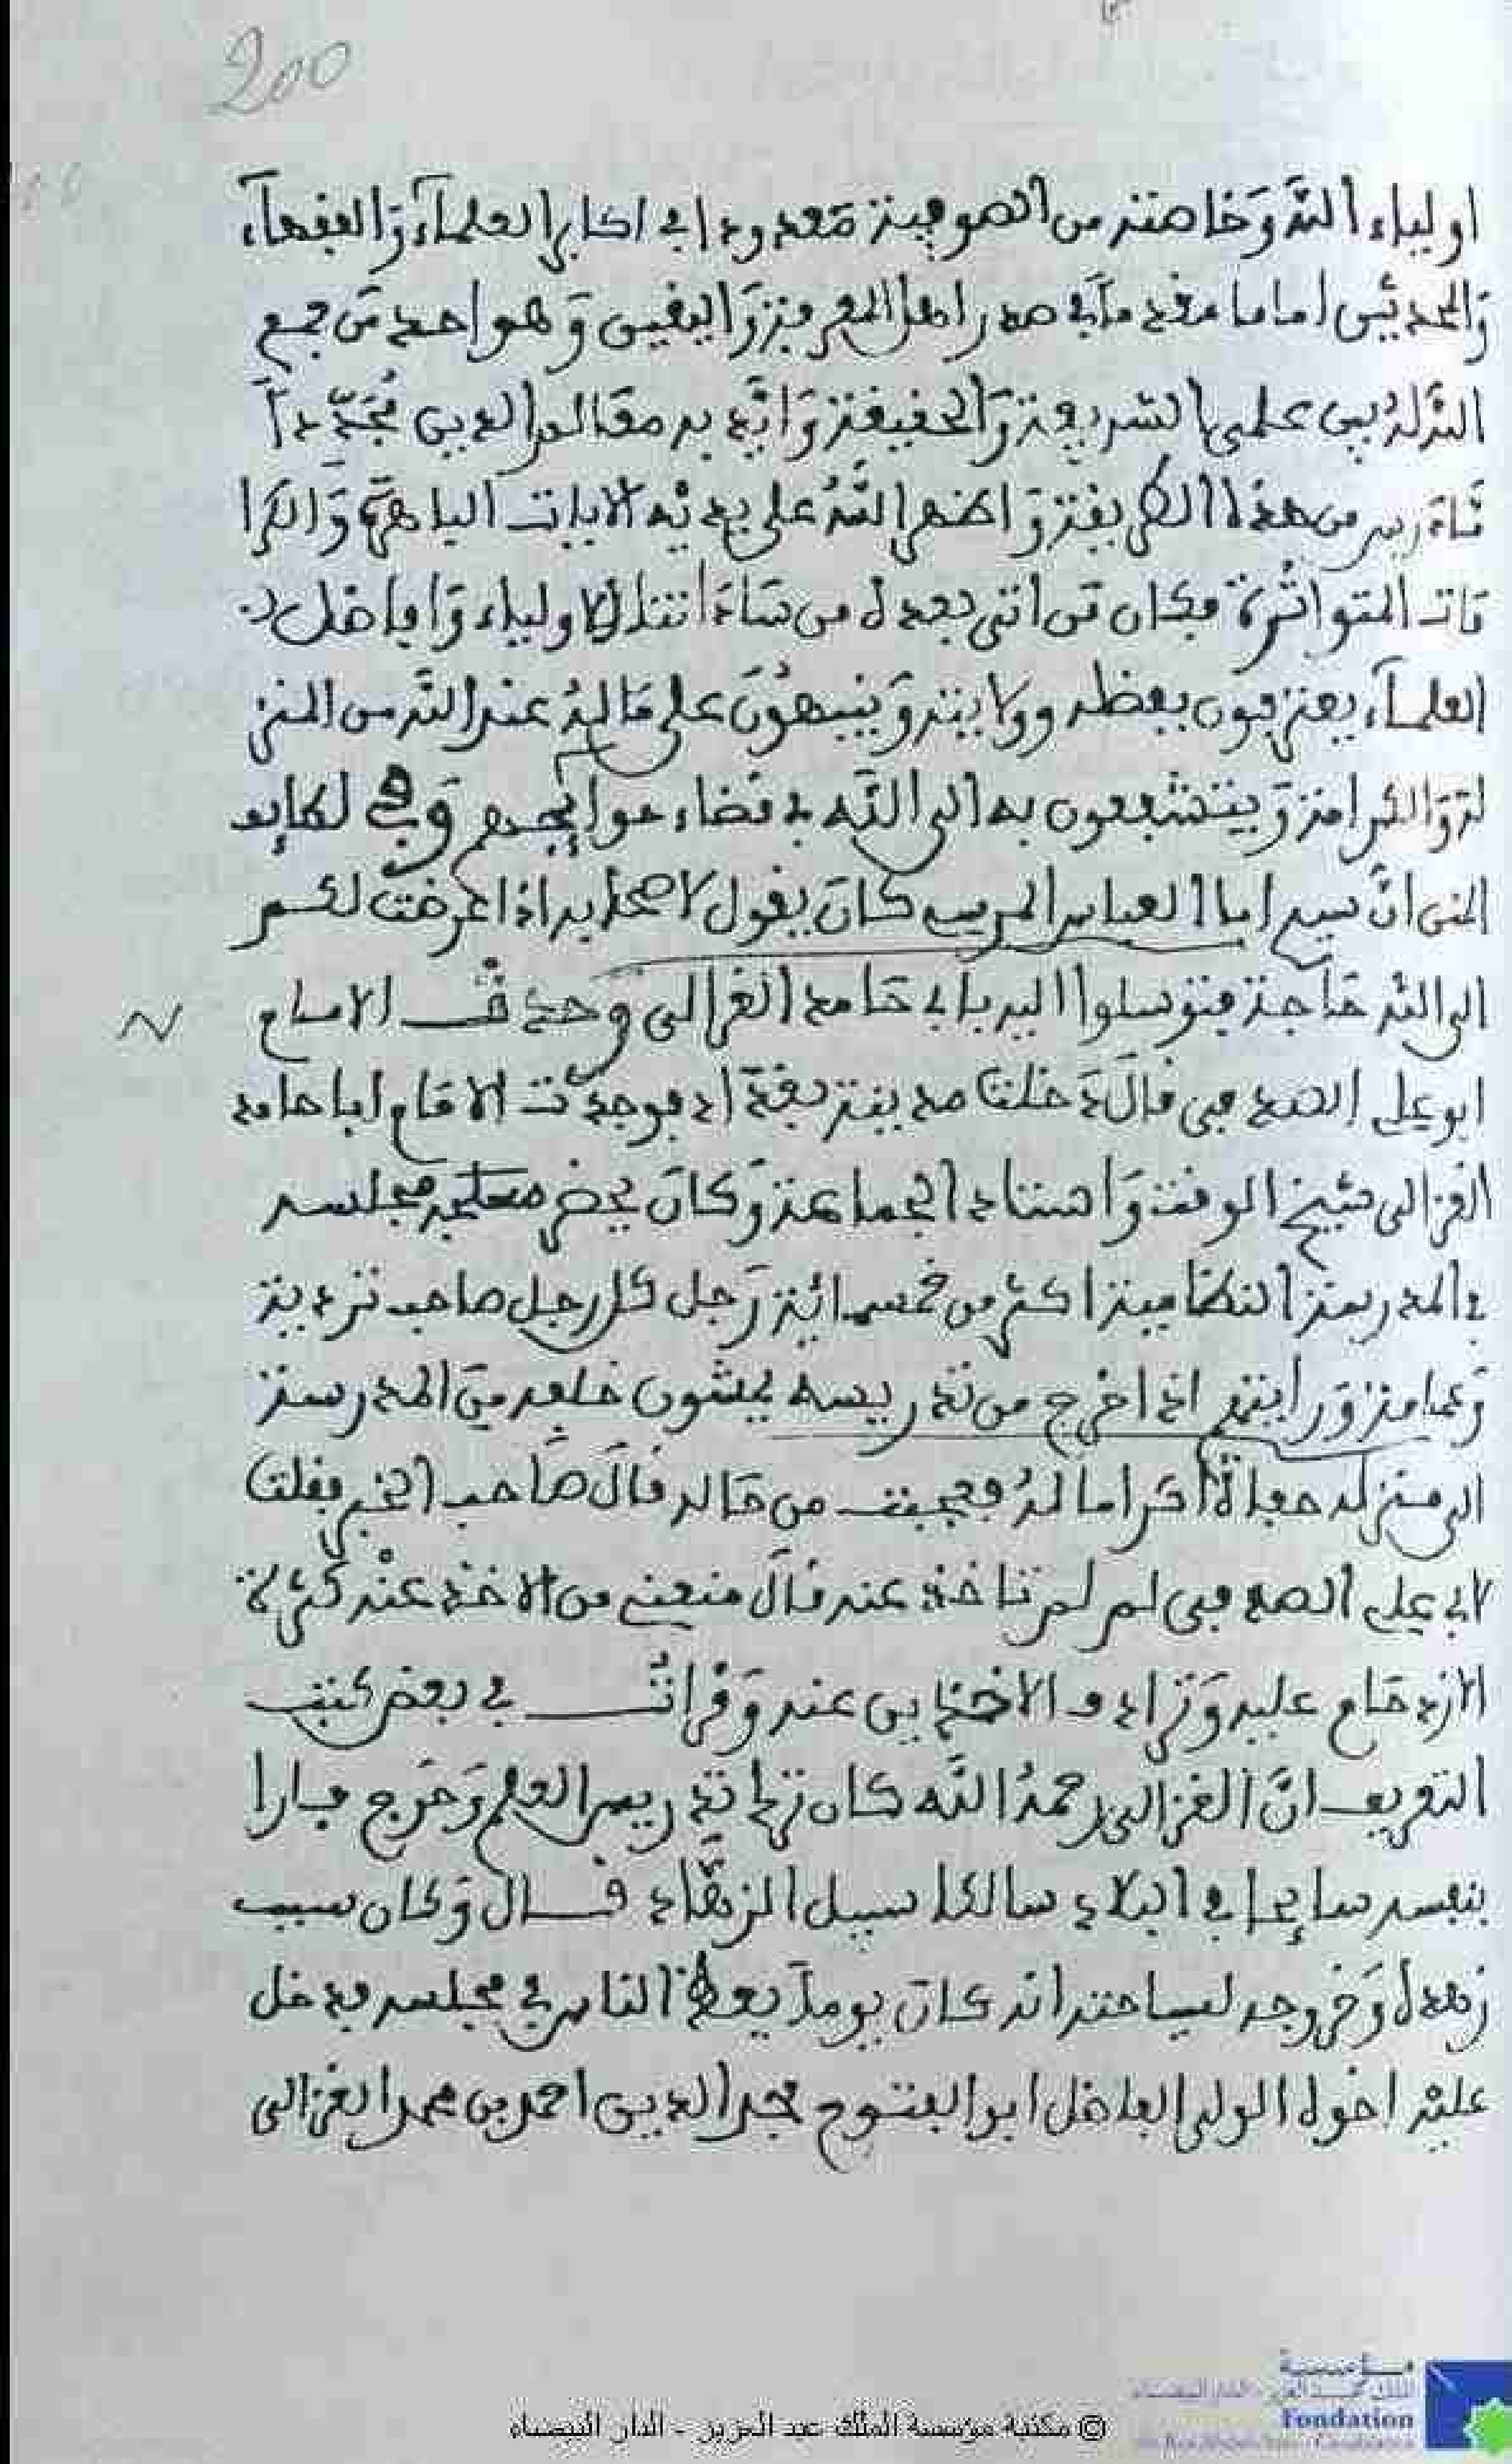 200
اولياء الله وخاصته من الصوفية معدودا في اكابر العلماء والفقهاء
والمحدثين اماما مقدما في صدر اهل المعرفة واليقين وهو احد من جمع
الله له بين علمي الشريعة والحقيقة وايد به معالم الدين مجددا
من هذه الطريقة واظهر الله على يديه الايات الباهرة والكرا
مات المتواثرة فكان من اتى بعده من سادات الاولياء وافاضل
العلماء يعترفون بفضله وولايته وينبهون على ماله عند الله من المنز
لة والكرامة ويتشفعون به الى الله في قضاء حوايجهم وفي لطايف
المنن ان سيدي ابا العباس المرسي كان يقول لاصحابه اذا عرضت لكم
الى الله حاجة فتوسلوا اليه بابي حامد الغزالي وحدث الامام
ابو علي الصدفي قال دخلت مدينة بغداد فوجدت الامام ابا حامد
الغزالي شيخ الوقت واستاد الجماعة وكان يحضر مجلسه
في المدرسة النظامية اكثر من خمسمائة رجل كل رجل صاحب
وعمامة ورايتهم اذا خرج من تدريسه يمشون خلفه من المدرسة
الى منزله حفاة اكراما له فعجبت من حاله قال صاحب الخبر فقلت
لابي علي الصدفي لم لم تاخذ عنه قال منعني من الاخذ عنه كثرة
الازدحام عليه وتزاد ف الاخذين عنه وقرات في بعض كتب
التعريف ان الغزالي رحمه الله كان ترك تدريس العلم وخرج فارا
بنفسه سايحا في البلاد سالكا سبيل الزهاد قال وكان سبب
زهده وخروجه لسياحته انه كان يوما يعظ الناس في مجلسه فدخل
عليه اخوه الولي الفاضل ابو الفتوح مجد الدين احمد بن محمد الغزالي
مؤسسة
الملك عبد العزيز - الدار البيضاء
Fondation
© مكتبة مؤسسة الملك عبد العزيز - الدار البيضاء